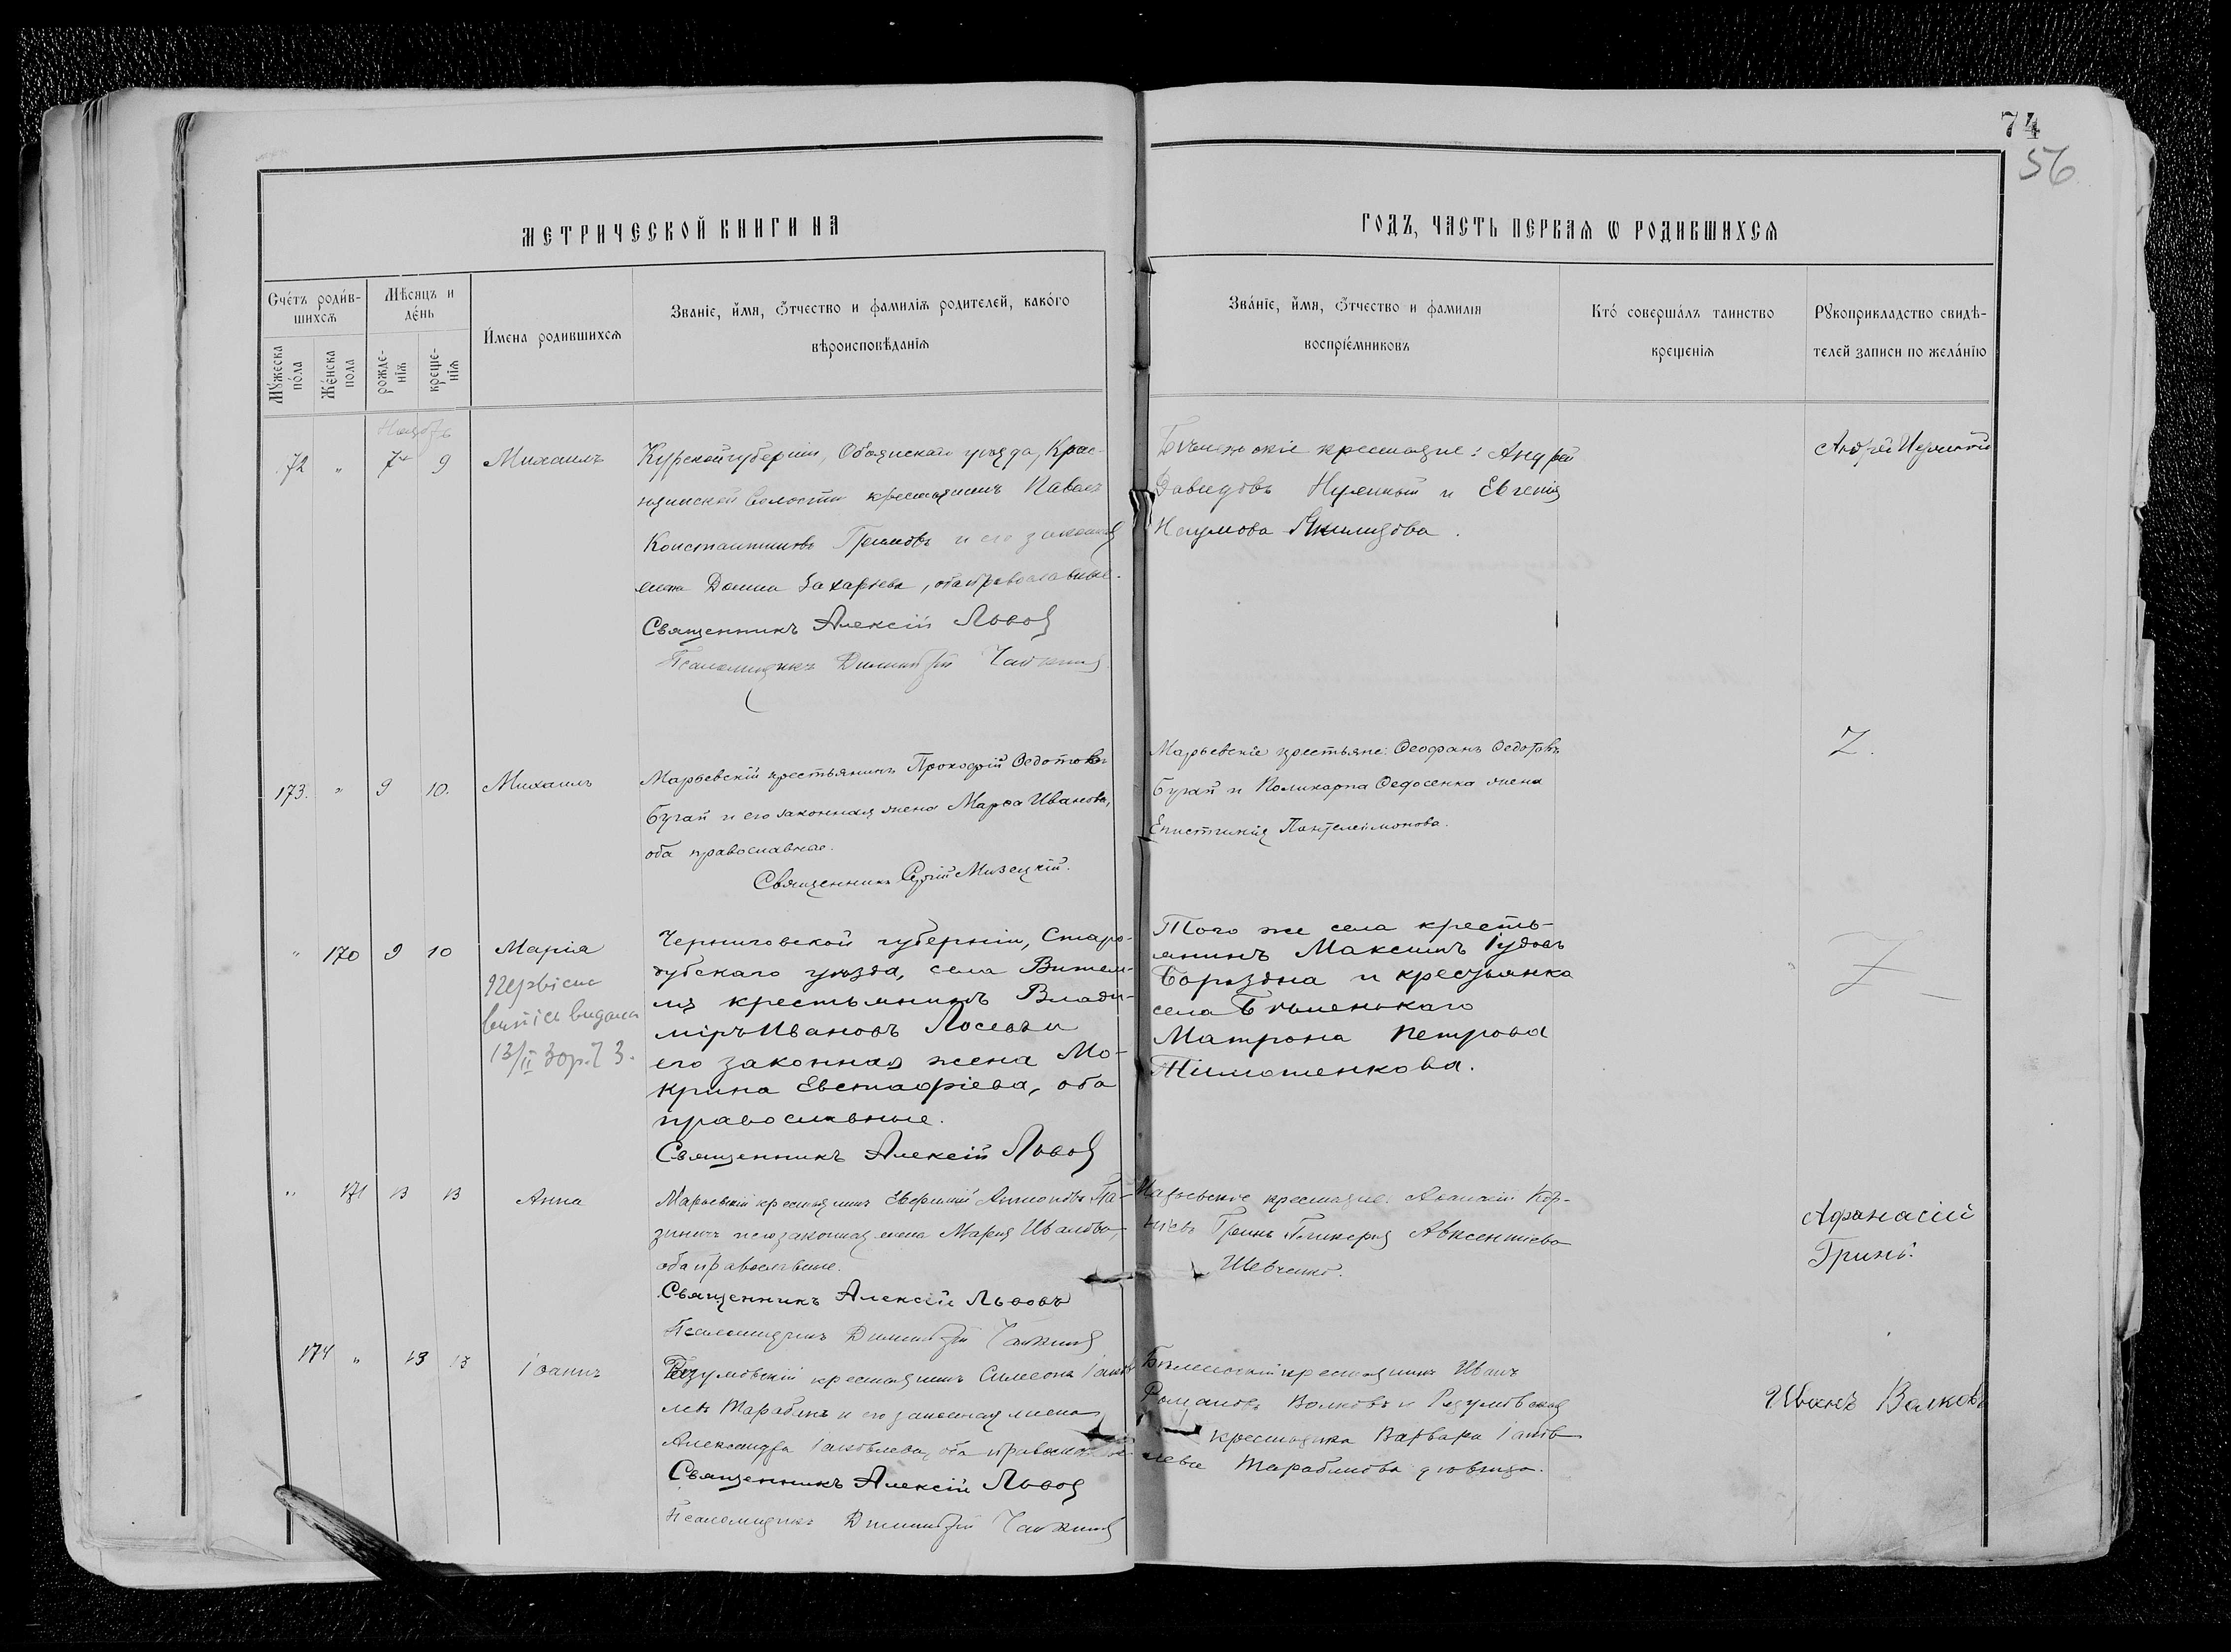 74
56
МЕТРИЧЕСКОЙ КНИГИ НА
ГОДЪ, ЧАСТЬ ПЕРВАѦ Ѡ РОДИВШИХСѦ
Счéтъ родѝв-
шихсѧ
Мѣсяцъ и
дéнь
И́мена родившихсѧ
Званіе, и́мя, ѻ́тчество и фамиліѧ родителей, какóго
вѣроисповѣданіѧ
Мꙋжеска
пóла
Жéнска
пола
рожде-
ніѧ
креще-
ніѧ
Звáніе, и́мя, ѻ́тчество и фамиліѧ
воспріéмниковъ
Ктó совершáлъ таинство
крещеніѧ
Рꙋкоприкладство свидѣ-
телей записи по желáнію
72 " 7 9 Михаилъ
Курской губерніи, Обоянскаго уѣзда, Крас-
волости крестьянинъ Павелъ
Константиновъ и его законная
жена Домна Захарьева, оба православные.
Священникъ Алексій Львовъ
Псаломщикъ Димитрій
крестьяне: Андрей
Давидовъ и Евгенія
Наумова
Андрей
173. " 9 10. Михаилъ
Марьевскій крестьянинъ Прокофій Ѳедотовъ
Бугай и его законная жена Марѳа Иванова,
оба православные.
Священникъ Сергій Мизецкій.
Марьевскіе крестьяне: Ѳеофанъ Ѳедотовъ
Бугай и Поликарпа Ѳедосенка жена
Епистимія Пантелеимонова.
Z.
" 170 9 10 Марія
Первісна
випісь видана
13/II 30р. Ч 3.
Черниговской губерніи, Старо-
дубскаго уѣзда, села Витем-
ля крестьянинъ Влади-
міръ Ивановъ Лосевъ и
его законная жена Мо-
крина Евстафіева, оба
православные.
Священникъ Алексій Львовъ
Того же села кресть-
янинъ Максимъ Іудовъ
Бороздна и крестьянка
села Бѣленькаго
Матрона Петрова
Тимошенкова.
Z
" 171 13 13 Анна
Марьевскій крестьянинъ Антоновъ Па-
и его законная жена Марія Иванова,
оба православные.
Священникъ Алексій Львовъ
Псаломщикъ Димитрій
Марьевскіе крестьяне: Аѳанасій Кор-
ніевъ Гринь Гликерія Авксентіева
Шевченко.
Афанасій
Гринь.
174 " 13 13 Іоаннъ
Разумовскій крестьянинъ Симеонъ Іаков-
левъ Тарабанъ и его законная жена
Александра Іаковлева, оба православные
Священникъ Алексій Львовъ
Псаломщикъ Димитрій
Бѣленскій крестьянинъ Иванъ
Романовъ Волковъ и Разумовская
крестьянка Варвара Іаков-
лева дѣвица.
Иванъ Валковъ